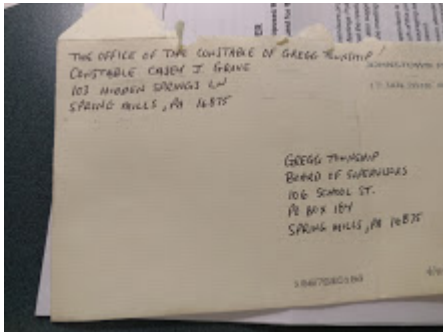 THE OFFICE OF THE CONSTABLE OF GREGG TOWNSHIP
CONSTABLE CASEY J. GROVE
103 HIDDEN SPRINGS LN
SPRING MILLS, PA 16875
JOHNSTOWN
GREGG TOWNSHIP
BOARD OF SUPERVISORS
106 SCHOOL ST.
PO BOX 184
SPRING MILLS, PA 16875